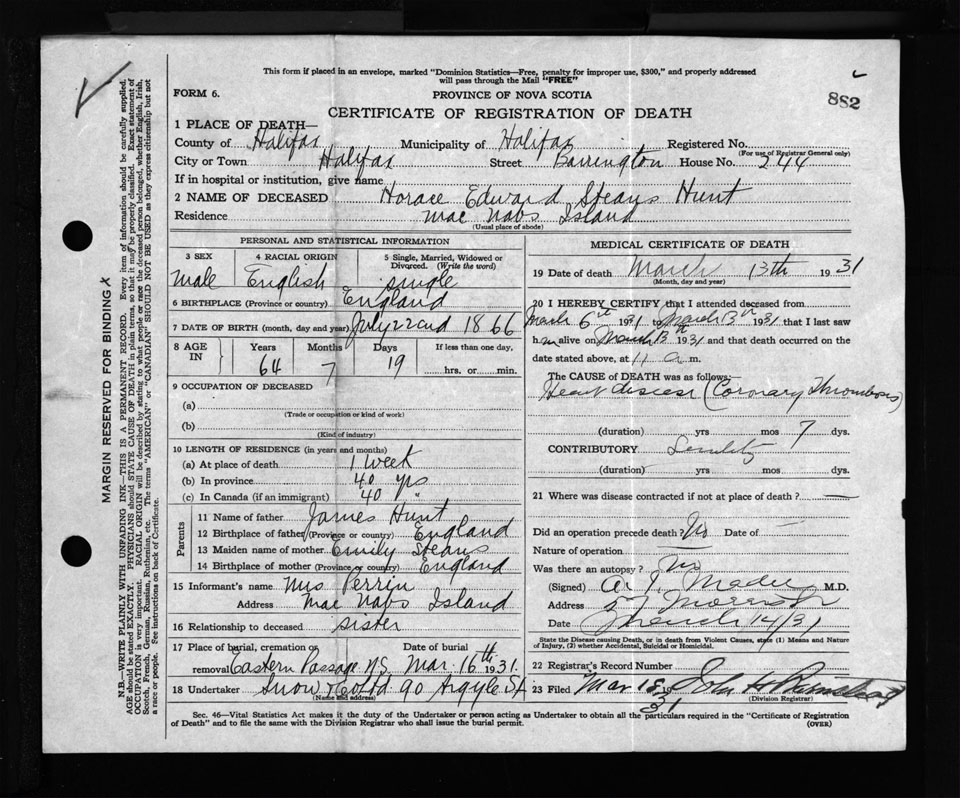 This form if placed in an envelope, marked "Dominion Statistics—Free, penalty for improper use, $300," and properly addressed
will pass through the Mail "FREE"
FORM 6.
PROVINCE OF NOVA SCOTIA
882
CERTIFICATE OF REGISTRATION OF DEATH
1 PLACE OF DEATH—
County of Halifax Municipality of Halifax Registered No.
(For use of Registrar General only)
City or Town Halifax Street Barrington House No. 244
If in hospital or institution, give name
2 NAME OF DECEASED Horace Edward Steans Hunt
Residence Mac Nabs Island
(Usual place of abode)
PERSONAL AND STATISTICAL INFORMATION
3 SEX 4 RACIAL ORIGIN 5 Single, Married, Widowed or
Divorced. (Write the word)
Male English single
6 BIRTHPLACE (Province or country) England
7 DATE OF BIRTH (month, day and year) July 22nd 1866
8 AGE IN Years Months Days If less than one day,
64 7 19 hrs. or min.
9 OCCUPATION OF DECEASED
(a)
(Trade or occupation or kind of work)
(b)
(Kind of industry)
10 LENGTH OF RESIDENCE (in years and months)
(a) At place of death 1 week
(b) In province 40 yrs
(c) In Canada (if an immigrant) 40 "
Parents
11 Name of father James Hunt
12 Birthplace of father (Province or country) England
13 Maiden name of mother Emily Steans
14 Birthplace of mother (Province or country) England
15 Informant's name Mrs Perrin
Address Mac Nabs Island
16 Relationship to deceased sister
17 Place of burial, cremation or Date of burial
removal Eastern Passage N.S. Mar. 16th 1931.
18 Undertaker Snow & Co Ltd 90 Argyle St.
(Name and address)
MEDICAL CERTIFICATE OF DEATH
19 Date of death March 13th 1931
(Month, day and year)
20 I HEREBY CERTIFY that I attended deceased from
March 6th 1931 to March 13th 1931 that I last saw
h im alive on March 13th 1931 and that death occurred on the
date stated above, at 11 a m.
The CAUSE OF DEATH was as follows:
Heart disease (Coronary Thrombosis)
(duration) yrs mos 7 dys.
CONTRIBUTORY Senility
(duration) yrs mos dys.
21 Where was disease contracted if not at place of death? —
Did an operation precede death? No Date of —
Nature of operation —
Was there an autopsy? No
(Signed) M.D.
Address
Date March 14/31
State the Disease causing Death, or in death from Violent Causes, state (1) Means and Nature
of Injury, (2) whether Accidental, Suicidal or Homicidal.
22 Registrar's Record Number
23 Filed Mar 18 1931 John H
(Division Registrar)
Sec. 46—Vital Statistics Act makes it the duty of the Undertaker or person acting as Undertaker to obtain all the particulars required in the "Certificate of Registration
of Death" and to file the same with the Division Registrar who shall issue the burial permit.
(OVER)
MARGIN RESERVED FOR BINDING
N.B.—WRITE PLAINLY WITH UNFADING INK—THIS IS A PERMANENT RECORD. Every item of information should be carefully supplied.
AGE should be stated EXACTLY. PHYSICIANS should STATE CAUSE OF DEATH in plain terms, so that it may be properly classified. Exact statement of
OCCUPATION is very important. RACIAL ORIGIN will be described by stating to what people or race the deceased person belonged, whether English, Irish,
Scotch, French, German, Russian, Ruthenian, etc. The terms "AMERICAN" or "CANADIAN" SHOULD NOT BE USED as they express citizenship but not
a race or people. See instructions on back of Certificate.